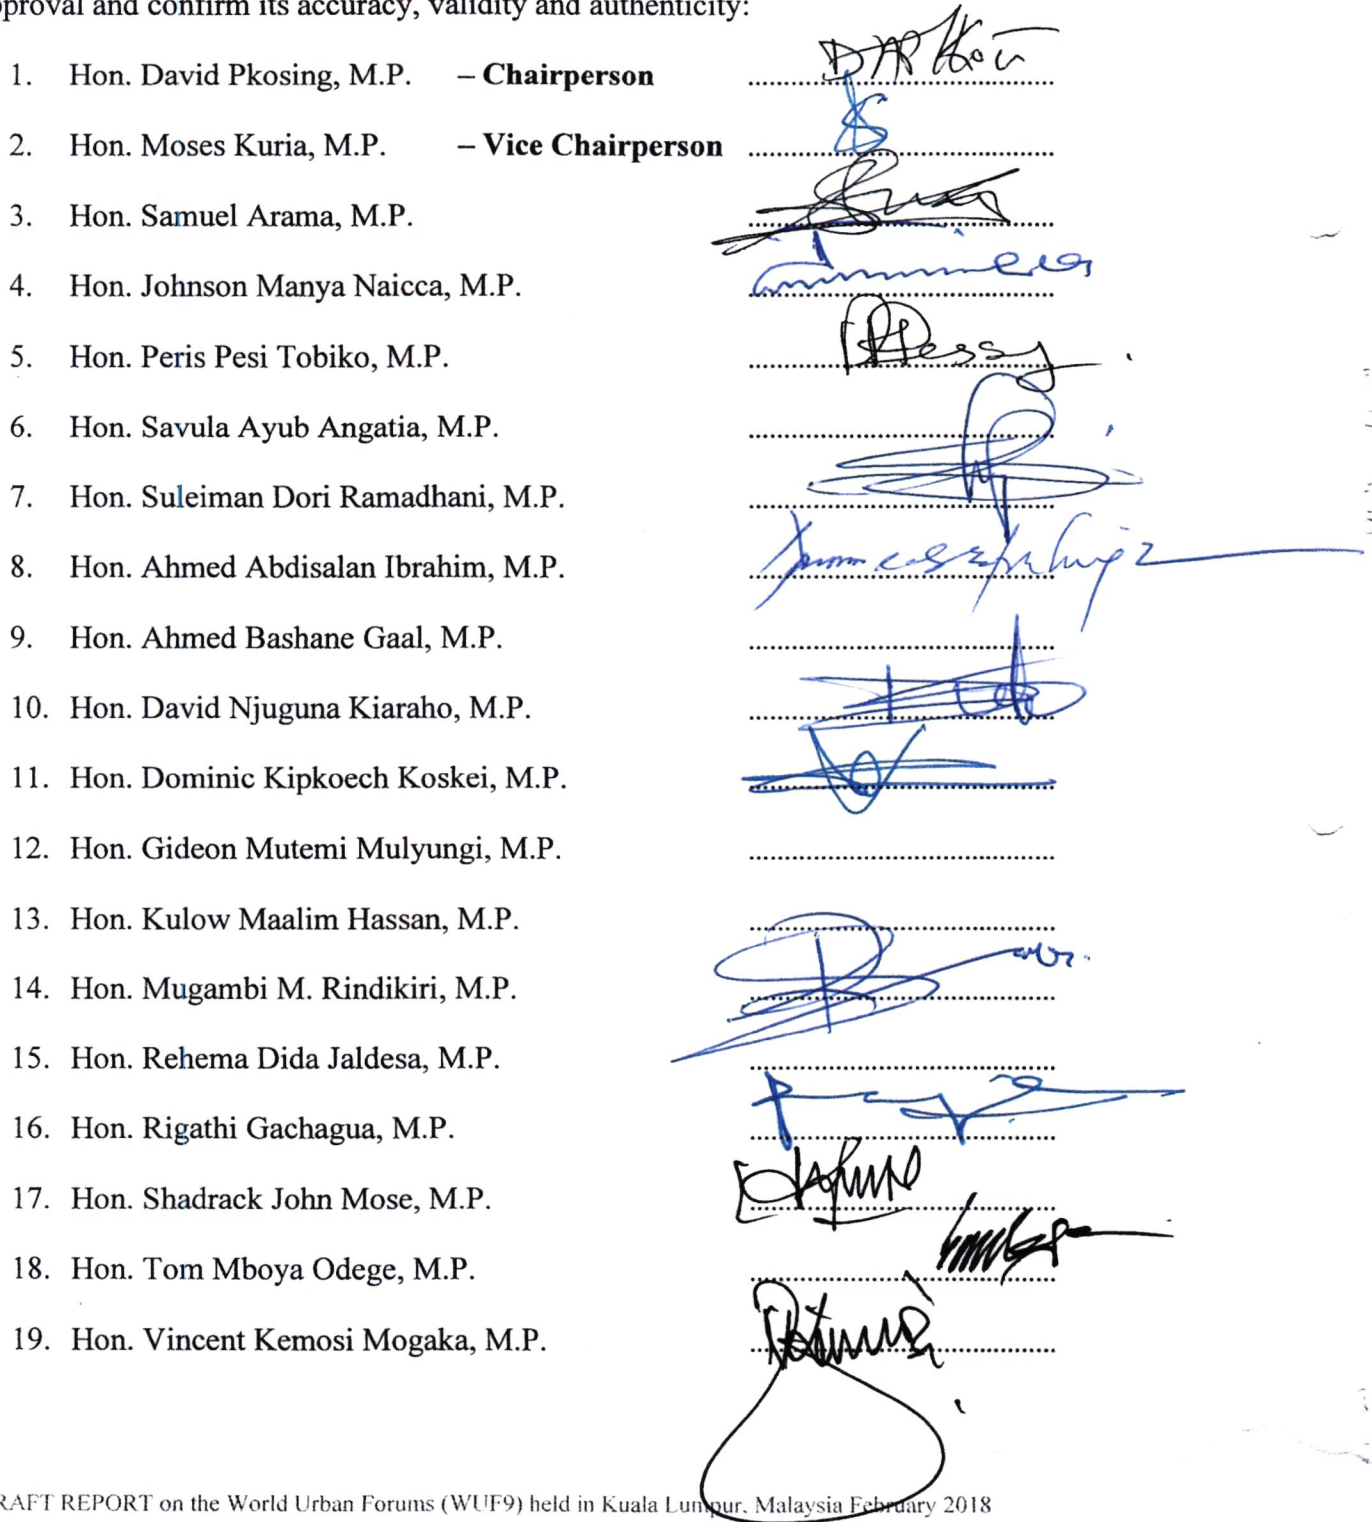 pproval and confirm its accuracy, validity and authenticity:
1. Hon. David Pkosing, M.P. – Chairperson
2. Hon. Moses Kuria, M.P. – Vice Chairperson
3. Hon. Samuel Arama, M.P.
4. Hon. Johnson Manya Naicca, M.P.
5. Hon. Peris Pesi Tobiko, M.P.
6. Hon. Savula Ayub Angatia, M.P.
7. Hon. Suleiman Dori Ramadhani, M.P.
8. Hon. Ahmed Abdisalan Ibrahim, M.P.
9. Hon. Ahmed Bashane Gaal, M.P.
10. Hon. David Njuguna Kiaraho, M.P.
11. Hon. Dominic Kipkoech Koskei, M.P.
12. Hon. Gideon Mutemi Mulyungi, M.P.
13. Hon. Kulow Maalim Hassan, M.P.
14. Hon. Mugambi M. Rindikiri, M.P.
15. Hon. Rehema Dida Jaldesa, M.P.
16. Hon. Rigathi Gachagua, M.P.
17. Hon. Shadrack John Mose, M.P.
18. Hon. Tom Mboya Odege, M.P.
19. Hon. Vincent Kemosi Mogaka, M.P.
RAFT REPORT on the World Urban Forums (WUF9) held in Kuala Lumpur, Malaysia February 2018